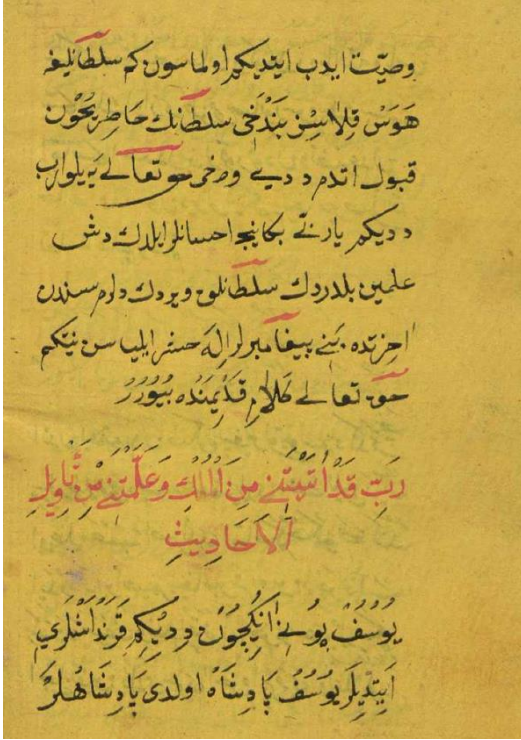 وصیّت ایدب ایتدیکم اولماسون کم سلطانلیغه
هَوَسْ قِلاسِنْ بَنْدَخِی سلطانك خاطریچون
قبول اتدم ددی وخی حق تعالی یه یلوارب
ددیکم یا ربّی بکا نیجه احسانلر ایلدك دش
علمین بلدردك سلطانلق ویردك دلرم سندن
اخرتده بَنِی پیغامبرلر اِلَه حشر ایلیاسن نیتکم
حق تعالی کلامِ قَدِیمِنْدَه بُیُورُرْ
رَبِّ قَدْ اٰتَیْتَنِی مِنَ الْمُلْكِ وَعَلَّمْتَنِی مِنْ تَأْوِیلِ
الْاَحَادِیثِ
یُوسُفْ بُونِی اَنِكچُونْ دِدِیکِم قَرَنْدَاشْلَرِی
اَیِتْدِیلَرْ یُوسُفْ پَادِشَاهْ اولدی پَادِشَاهْلَرْ